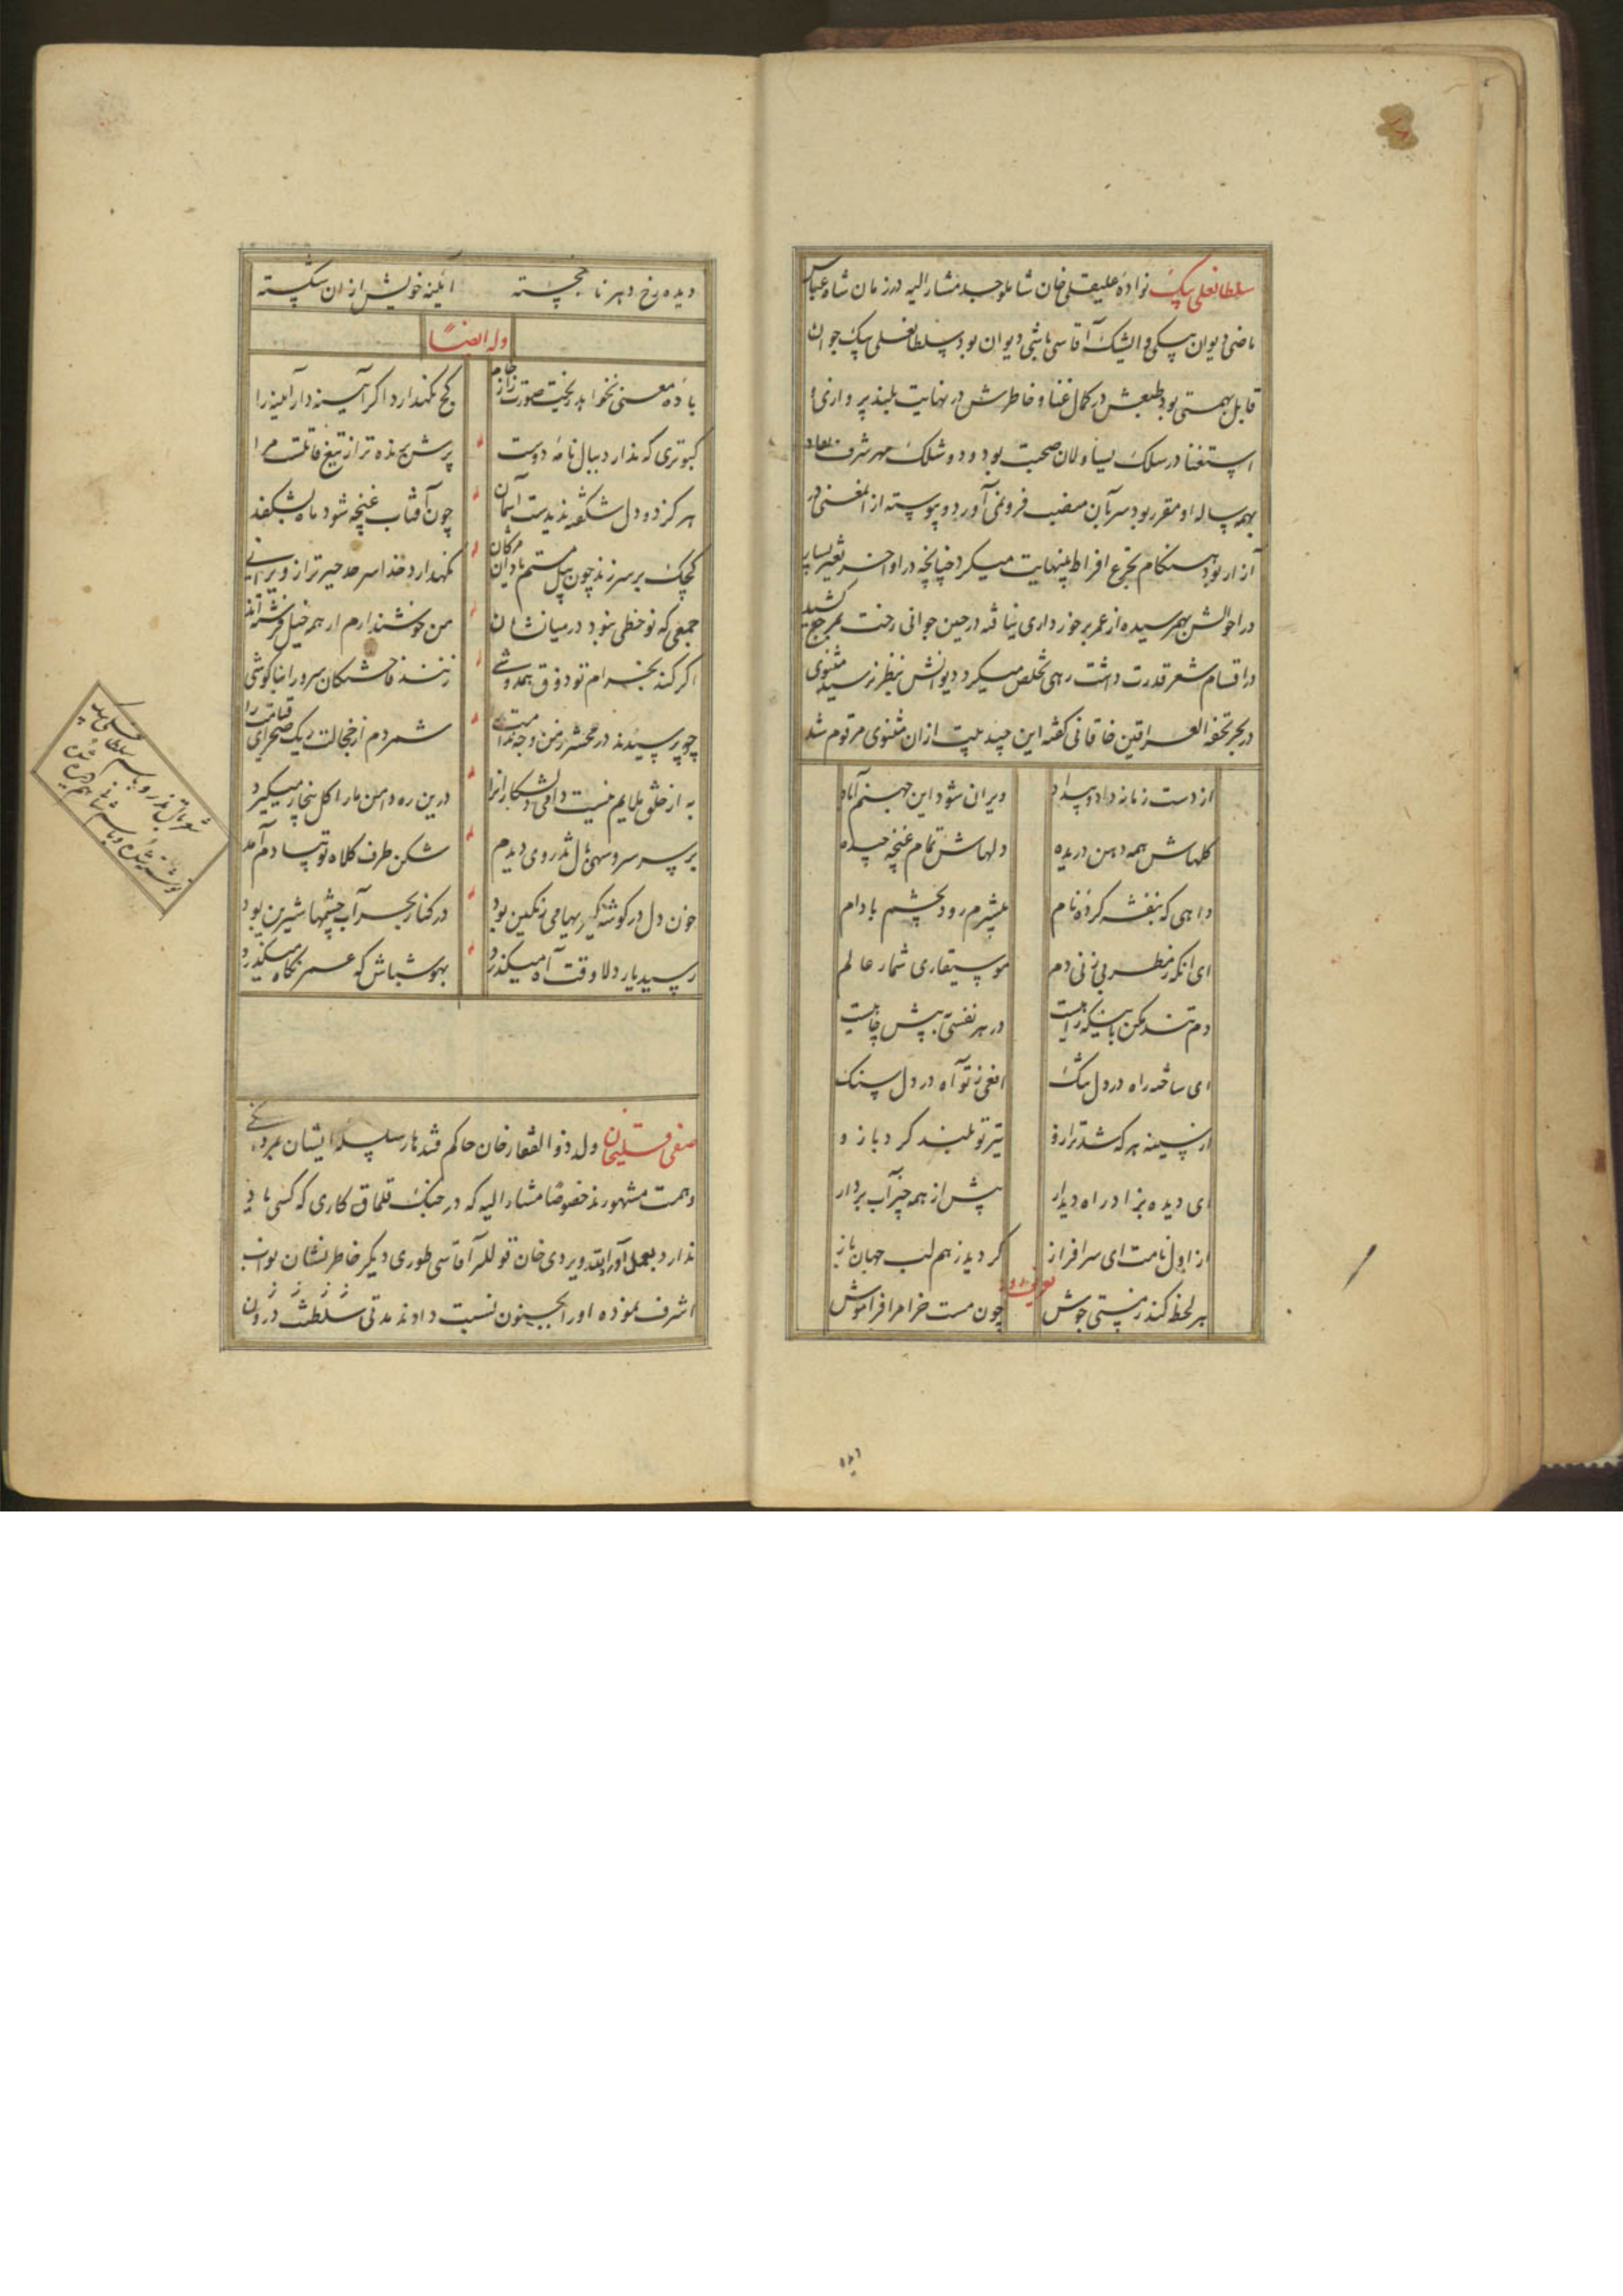 سلطانعلی بیک نوادهٔ علیقلی خان شاملو جد مشار الیه در زمان شاه عباس
ماضی دیوان بیکی و ایشک آقاسی باشی دیوان بود سلطانعلی بیک جوان
قابل بهمتی بود طبعش در کمال غنا و خاطرش در نهایت بلند پروازی
استغنا در سلک یساولان صحبت بود و
همه ساله او مقرر بود سر بآن منصب فرو نمی آورد و پیوسته از
آزار بود هنگام تجرع افراط بینهایت میکرد چنانچه در اواخر تغییر بسیار
در احوالش بهم رسیده از عمر برخورداری نیافته در حین جوانی رخت کشید
در اقسام شعر قدرت داشت رهی تخلص میکرد دیوانش بنظر نرسید مثنوی
در بحر تحفة العراقین خاقانی گفته این چند بیت ازان مثنوی مرقوم شد
از دست زمانه داد و بیداد ویران شود این جهنم آباد
کلهاش همه دهن دریده دلهاش تمام غنچه چیده
داهی که بنفشه کرده نام بیشرم رود بچشم بادام
ای آنکه ز مطربی زنی دم موسیقاری شمار عالم
دم تند مکن در هر نفسی
ای ساخته راه در دل تنک افعی ز تو آه در دل سنک
از سینه هر که شد ترازو تیر تو بلند کرد بازو
ای دیده بزاد راه دیدار پیش از همه چیز آب بردار
از اول نامت ای سرافراز کردید ز هم لب جهان باز
هر لحظه کند ز مستی جوش چون مست خرام را فراموش
۱۲۱
دیده رخ دهر نا خجسته آئینه خویش ازان شکسته
وله ایضاً
بادهٔ معنی نخواهد ریخت صورت از جام کج نکهدارد اکر آیینه دار آیینه را
کبوتری که ندارد ببال نامهٔ دوست پرش برنده تر از تیغ قاتلست مرا
هر کز دو دل شکفته ندیدست آسمان چون آفتاب غنچه شود ماه بشکفد
کجک بر سر زند چون پیل مستم مژکان نکهدارد خدا سر حد
جمعی که نو خطی نبود در میانشان من خوش ندارم ار همه خیل فرشته اند
اکر کند بخرام تو ذوق همدوشی زنند فاختکان سرو را بناکوشی
چو پرسیدند در محشر ز من شمردم از خجالت ریک صحرای قیامت را
به از خلق ملایم نیست دامی درین ره دامن ما را کل بیخار میکیرد
بر سر سرو سهی بال تذروی دیدم شکن طرف کلاه تو بیادم آمد
خون دل در کوشه کیریها می رنکین بود در کنار بحر آب چشمها شیرین بود
رسید یار دلا وقت آه میکذرد بهوش باش که عمر نکاه میکذرد
صفی قلیخان ولد ذو الفقار خان حاکم قندهار سلسله ایشان بمردی
و همت مشهورند خصوصا مشار الیه که در جنک قلماق کاری که کسی یاد
ندارد بعمل آورد اللهویردی خان قوللر آقاسی طوری دیکر خاطر نشان نواب
اشرف نموده او را بجنون نسبت دادند مدتی